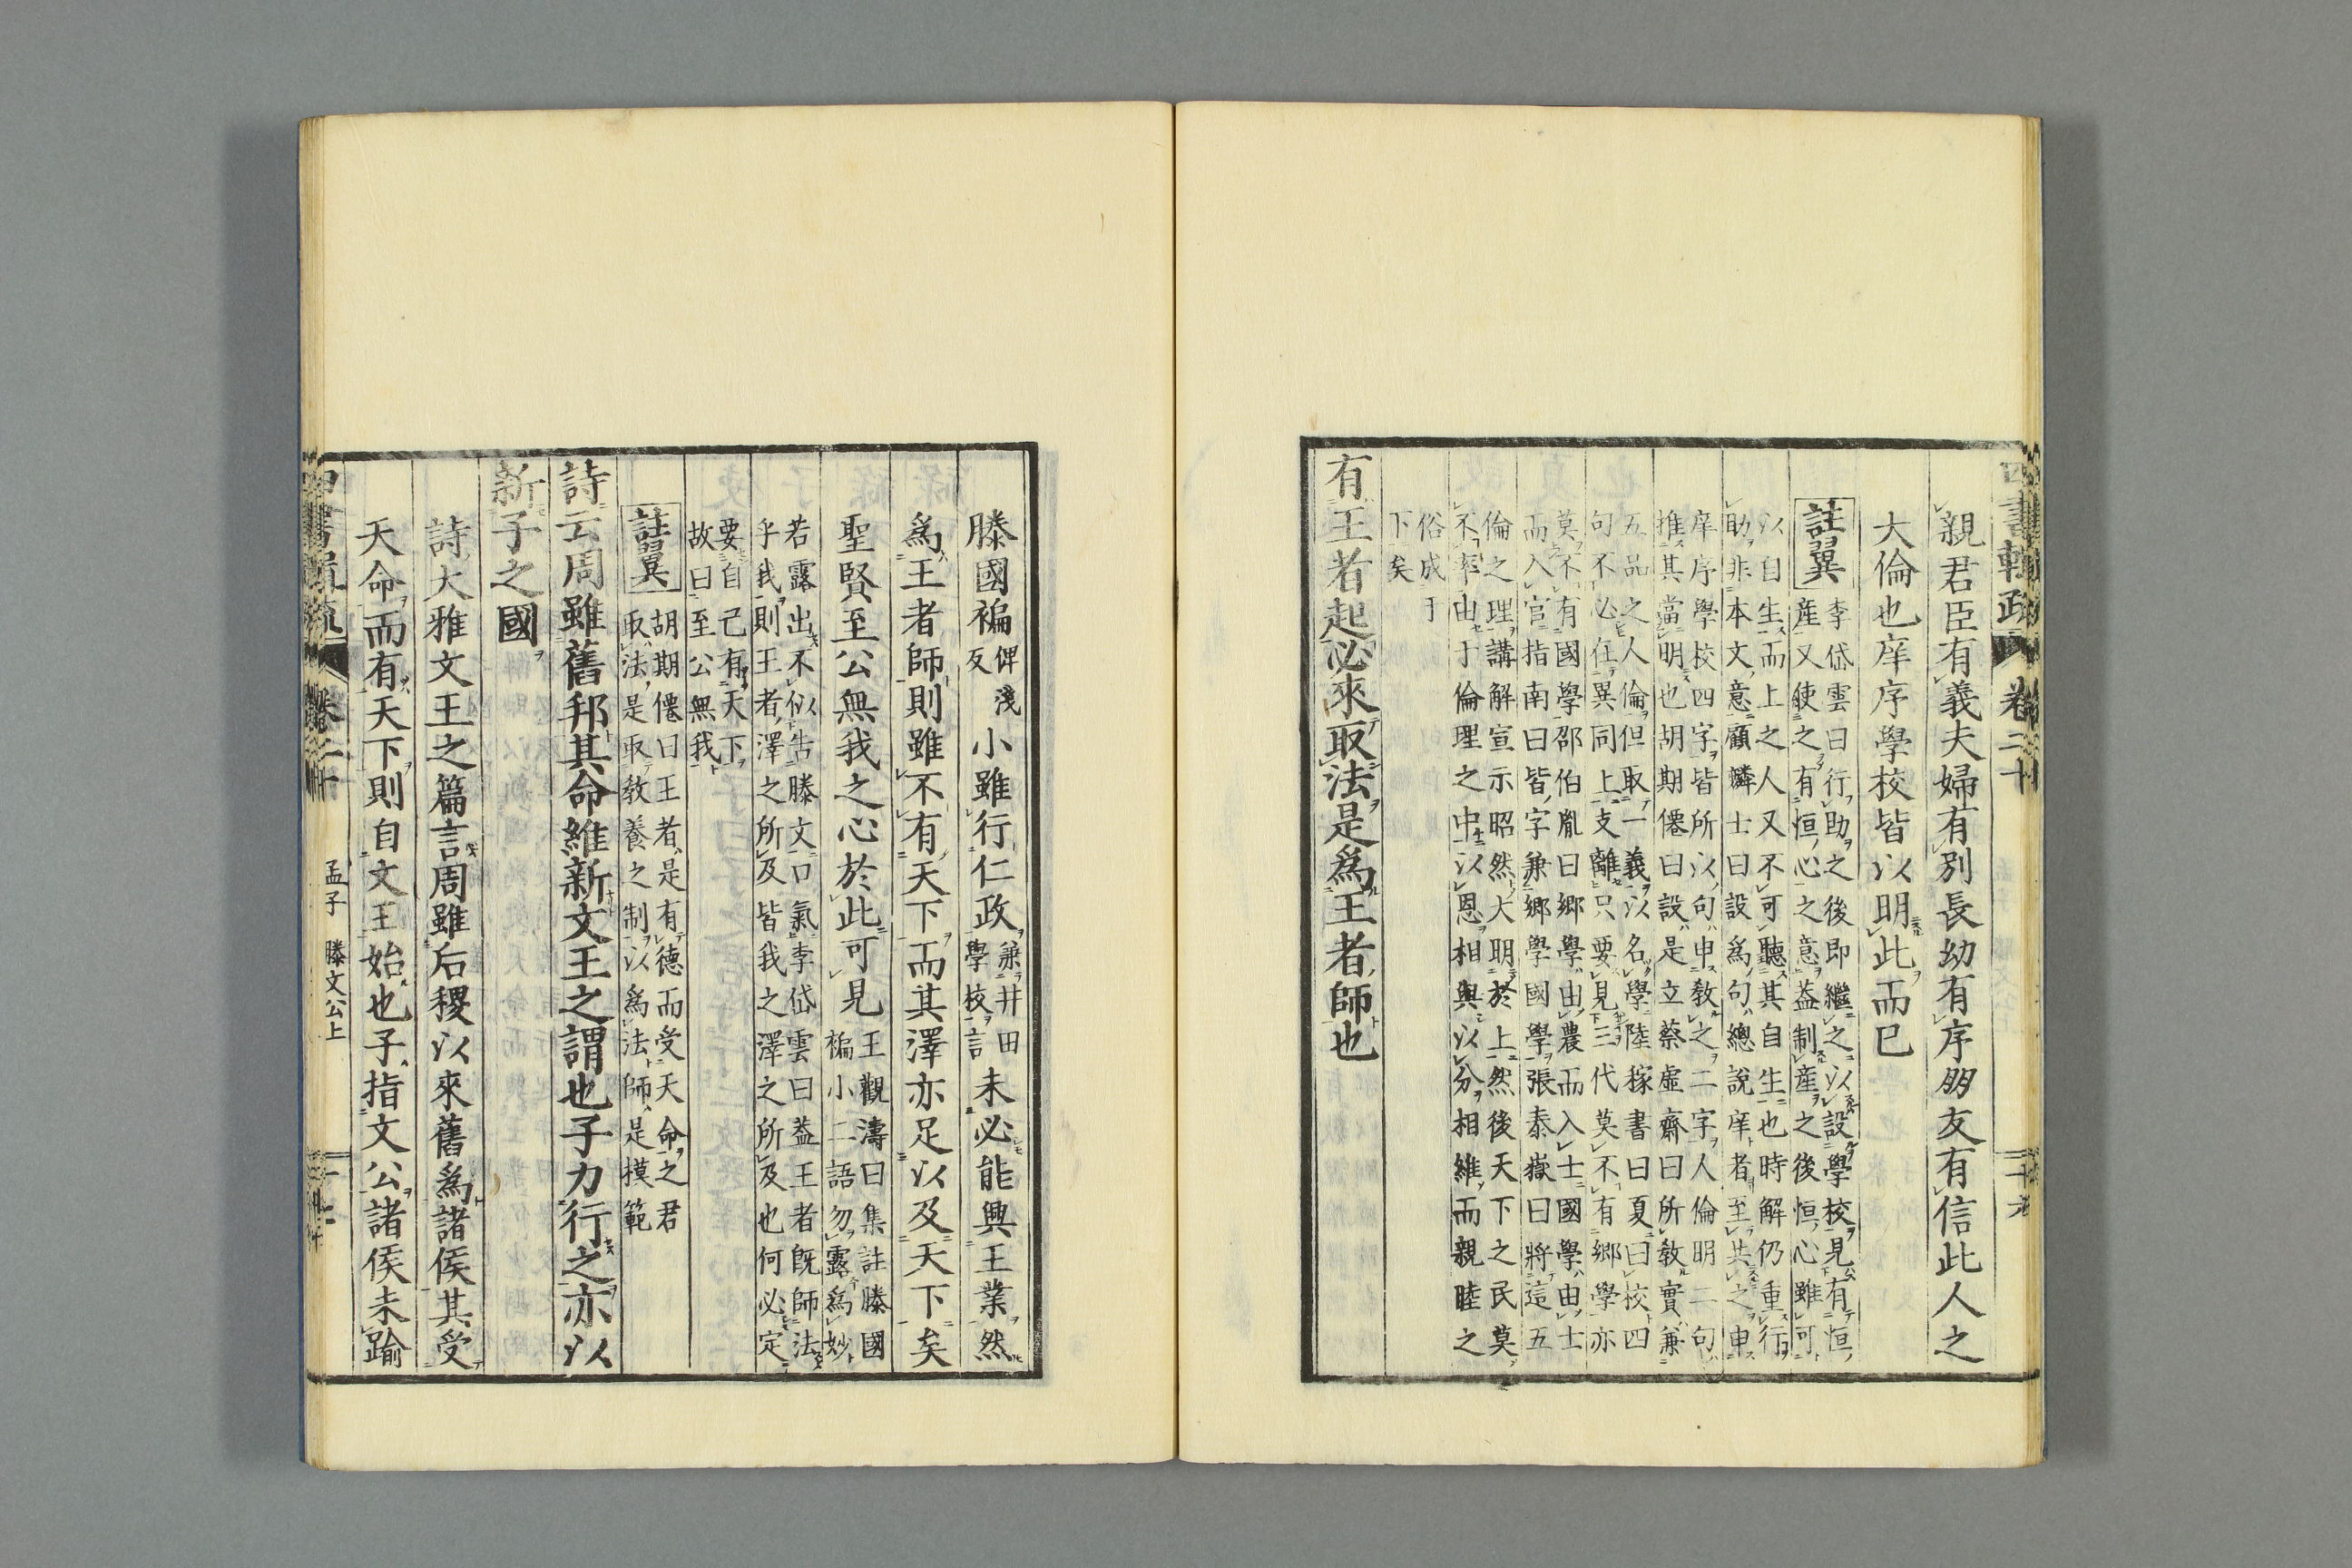 親君臣有義夫婦有別長幼有序朋友有信此人之
大倫也庠序學校皆以明此而已
註翼
李岱雲曰行助之後即繼之以設學校見有恒
產又使之有恒心之意蓋制產之後恒心雖可
以自生而上之人又不可聽其自生也時解仍重行
助非本文意顧麟士曰設爲句總說庠者至共之申
庠序學校四字皆所以句申教之二字人倫明二句
推其當明也胡期僊曰設是立蔡虛齋曰所教實兼
五品之人倫但取一義以名學陸稼書曰夏曰校四
句不必在異同上支離只要見三代莫不有鄉學亦
莫不有國學邵伯胤曰鄉學由農而入士國學由士
而入官指南曰皆字兼鄉學國學張泰嶽曰將這五
倫之理講解宣示昭然大明於上然後天下之民莫
不率由于倫理之中以恩相與以分相維而親睦之
俗成于
下矣
有王者起必來取法是爲王者師也
滕國褊俾淺反小雖行仁政兼井田學校言未必能興王業然
爲王者師則雖不有天下而其澤亦足以及天下矣
聖賢至公無我之心於此可見
王觀濤曰集註滕國
褊小二語勿露爲妙
若露出不似告滕文口氣李岱雲曰蓋王者既師法
乎我則王者澤之所及皆我之澤之所及也何必定
要自己有天下
故曰至公無我
註翼
胡期僊曰王者是有德而受天命之君
取法是取教養之制以爲法師是模範
詩云周雖舊邦其命維新文王之謂也子力行之亦以
新子之國
詩大雅文王之篇言周雖后稷以來舊爲諸侯其受
天命而有天下則自文王始也子指文公諸侯未踰
卷二十
孟子 滕文公上